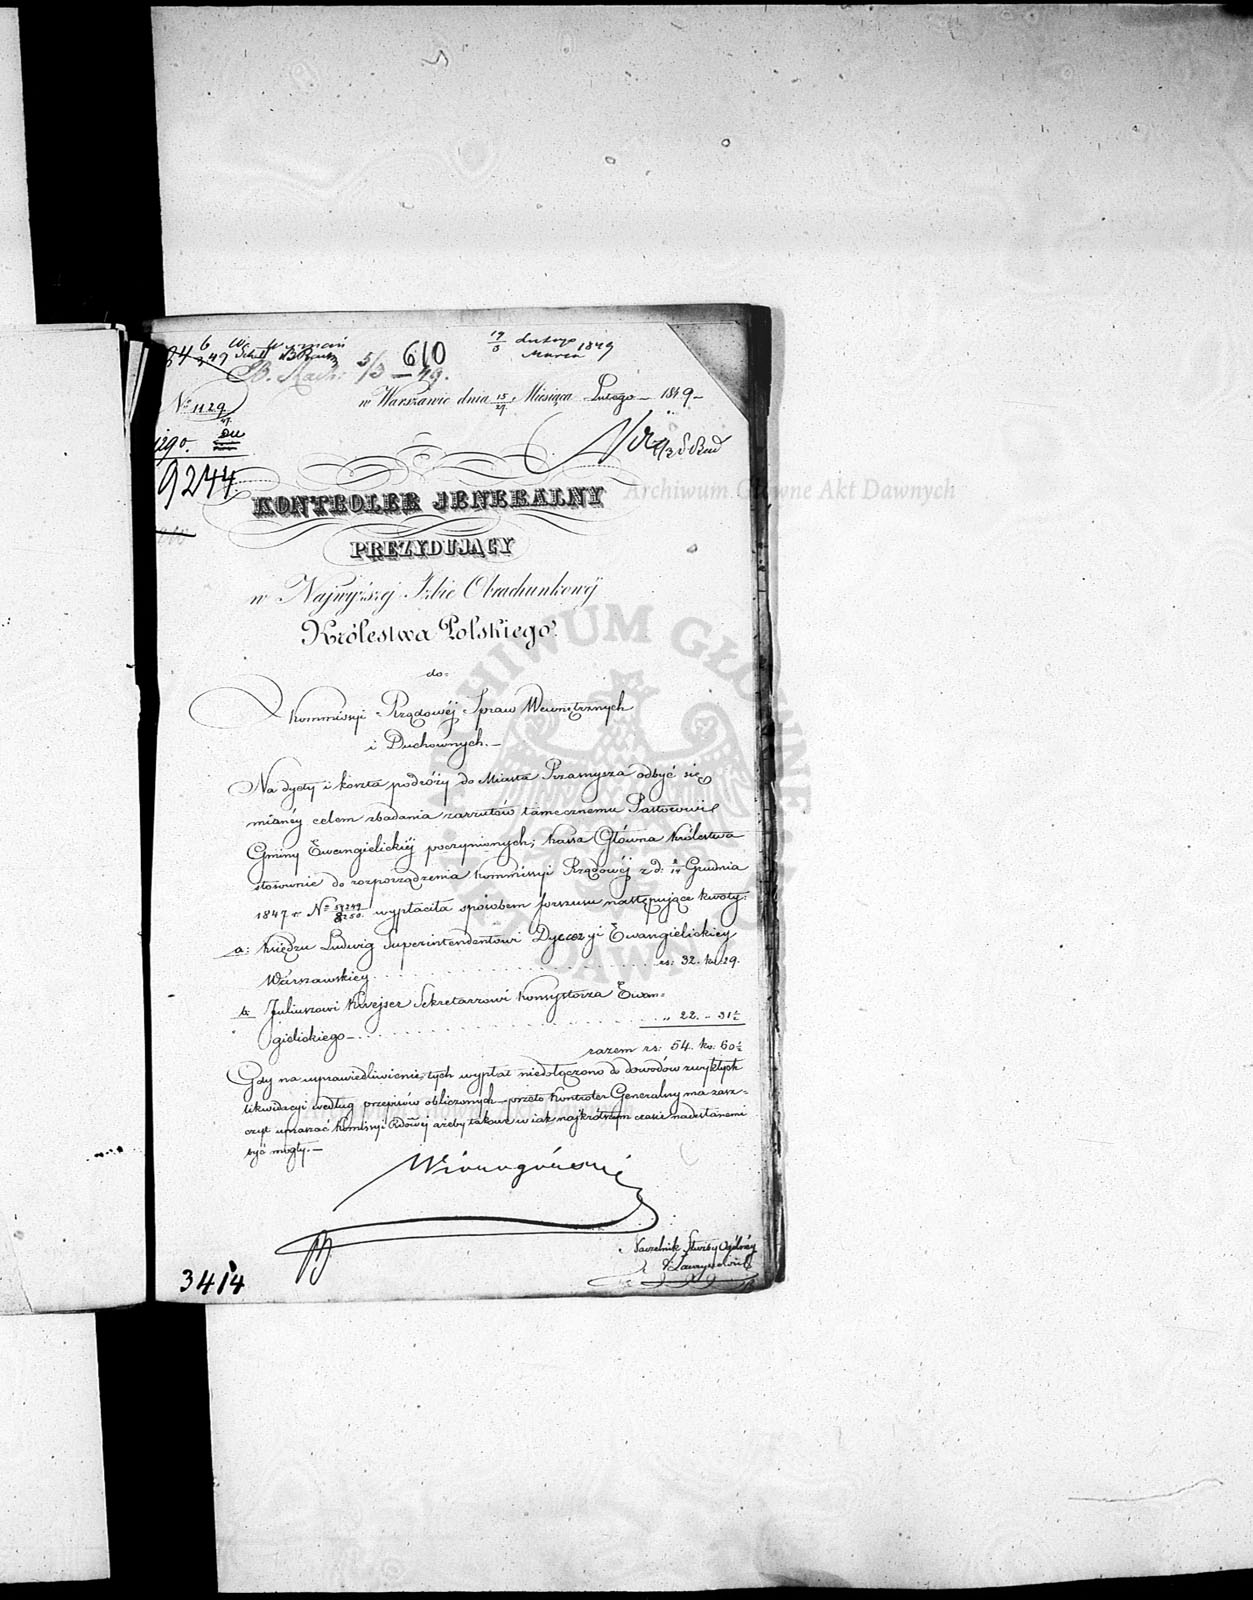 610
19 Lutego 1849
Marca
5/3 — 49.
w Warszawie dnia 15/27 Miesiąca Lutego — 1849 —
№ 1129
9244
KONTROLER JENERALNY
Archiwum Główne Akt Dawnych
PREZYDUJĄCY
w Najwyższej Izbie Obrachunkowéj
Królestwa Polskiego.
do
Kommissyi Rządowéj Spraw Wewnętrznych
i Duchownych. —
Na dyety i koszta podróży do Miasta Przasnysza odbyć się
mianéj celem zbadania zarzutów tamecznemu Pastorowi
Gminy Ewangielickiéj poczynionych, Kassa Główna Królestwa
stosownie do rozporządzenia Kommissyi Rządowéj z d: 2/14 Grudnia
1847 r. № wypłaciła sposobem forszusu następujące kwoty:
a: Księdzu Ludwig Superintendentowi Dyecezyi Ewangielickiey
Warszawskiey . . . rs: 32. ko: 29.
b: Juliuszowi Krejser Sekretarzowi Konsystorza Ewan=
gielickiego — . . . „ 22. – 31½
razem rs: 54. ko: 60½
Gdy na usprawiedliwienie tych wypłat niedołączono do dowodów zwykłych
likwidacyi według przepisów obliczonych — przeto Kontroler Generalny ma zasz-
czyt upraszać Kommissyi Rdowéj ażeby takowe w jak najkrótszym czasie nadesłanemi
być mogły. —
Naczelnik Służby Ogólnéj
3414